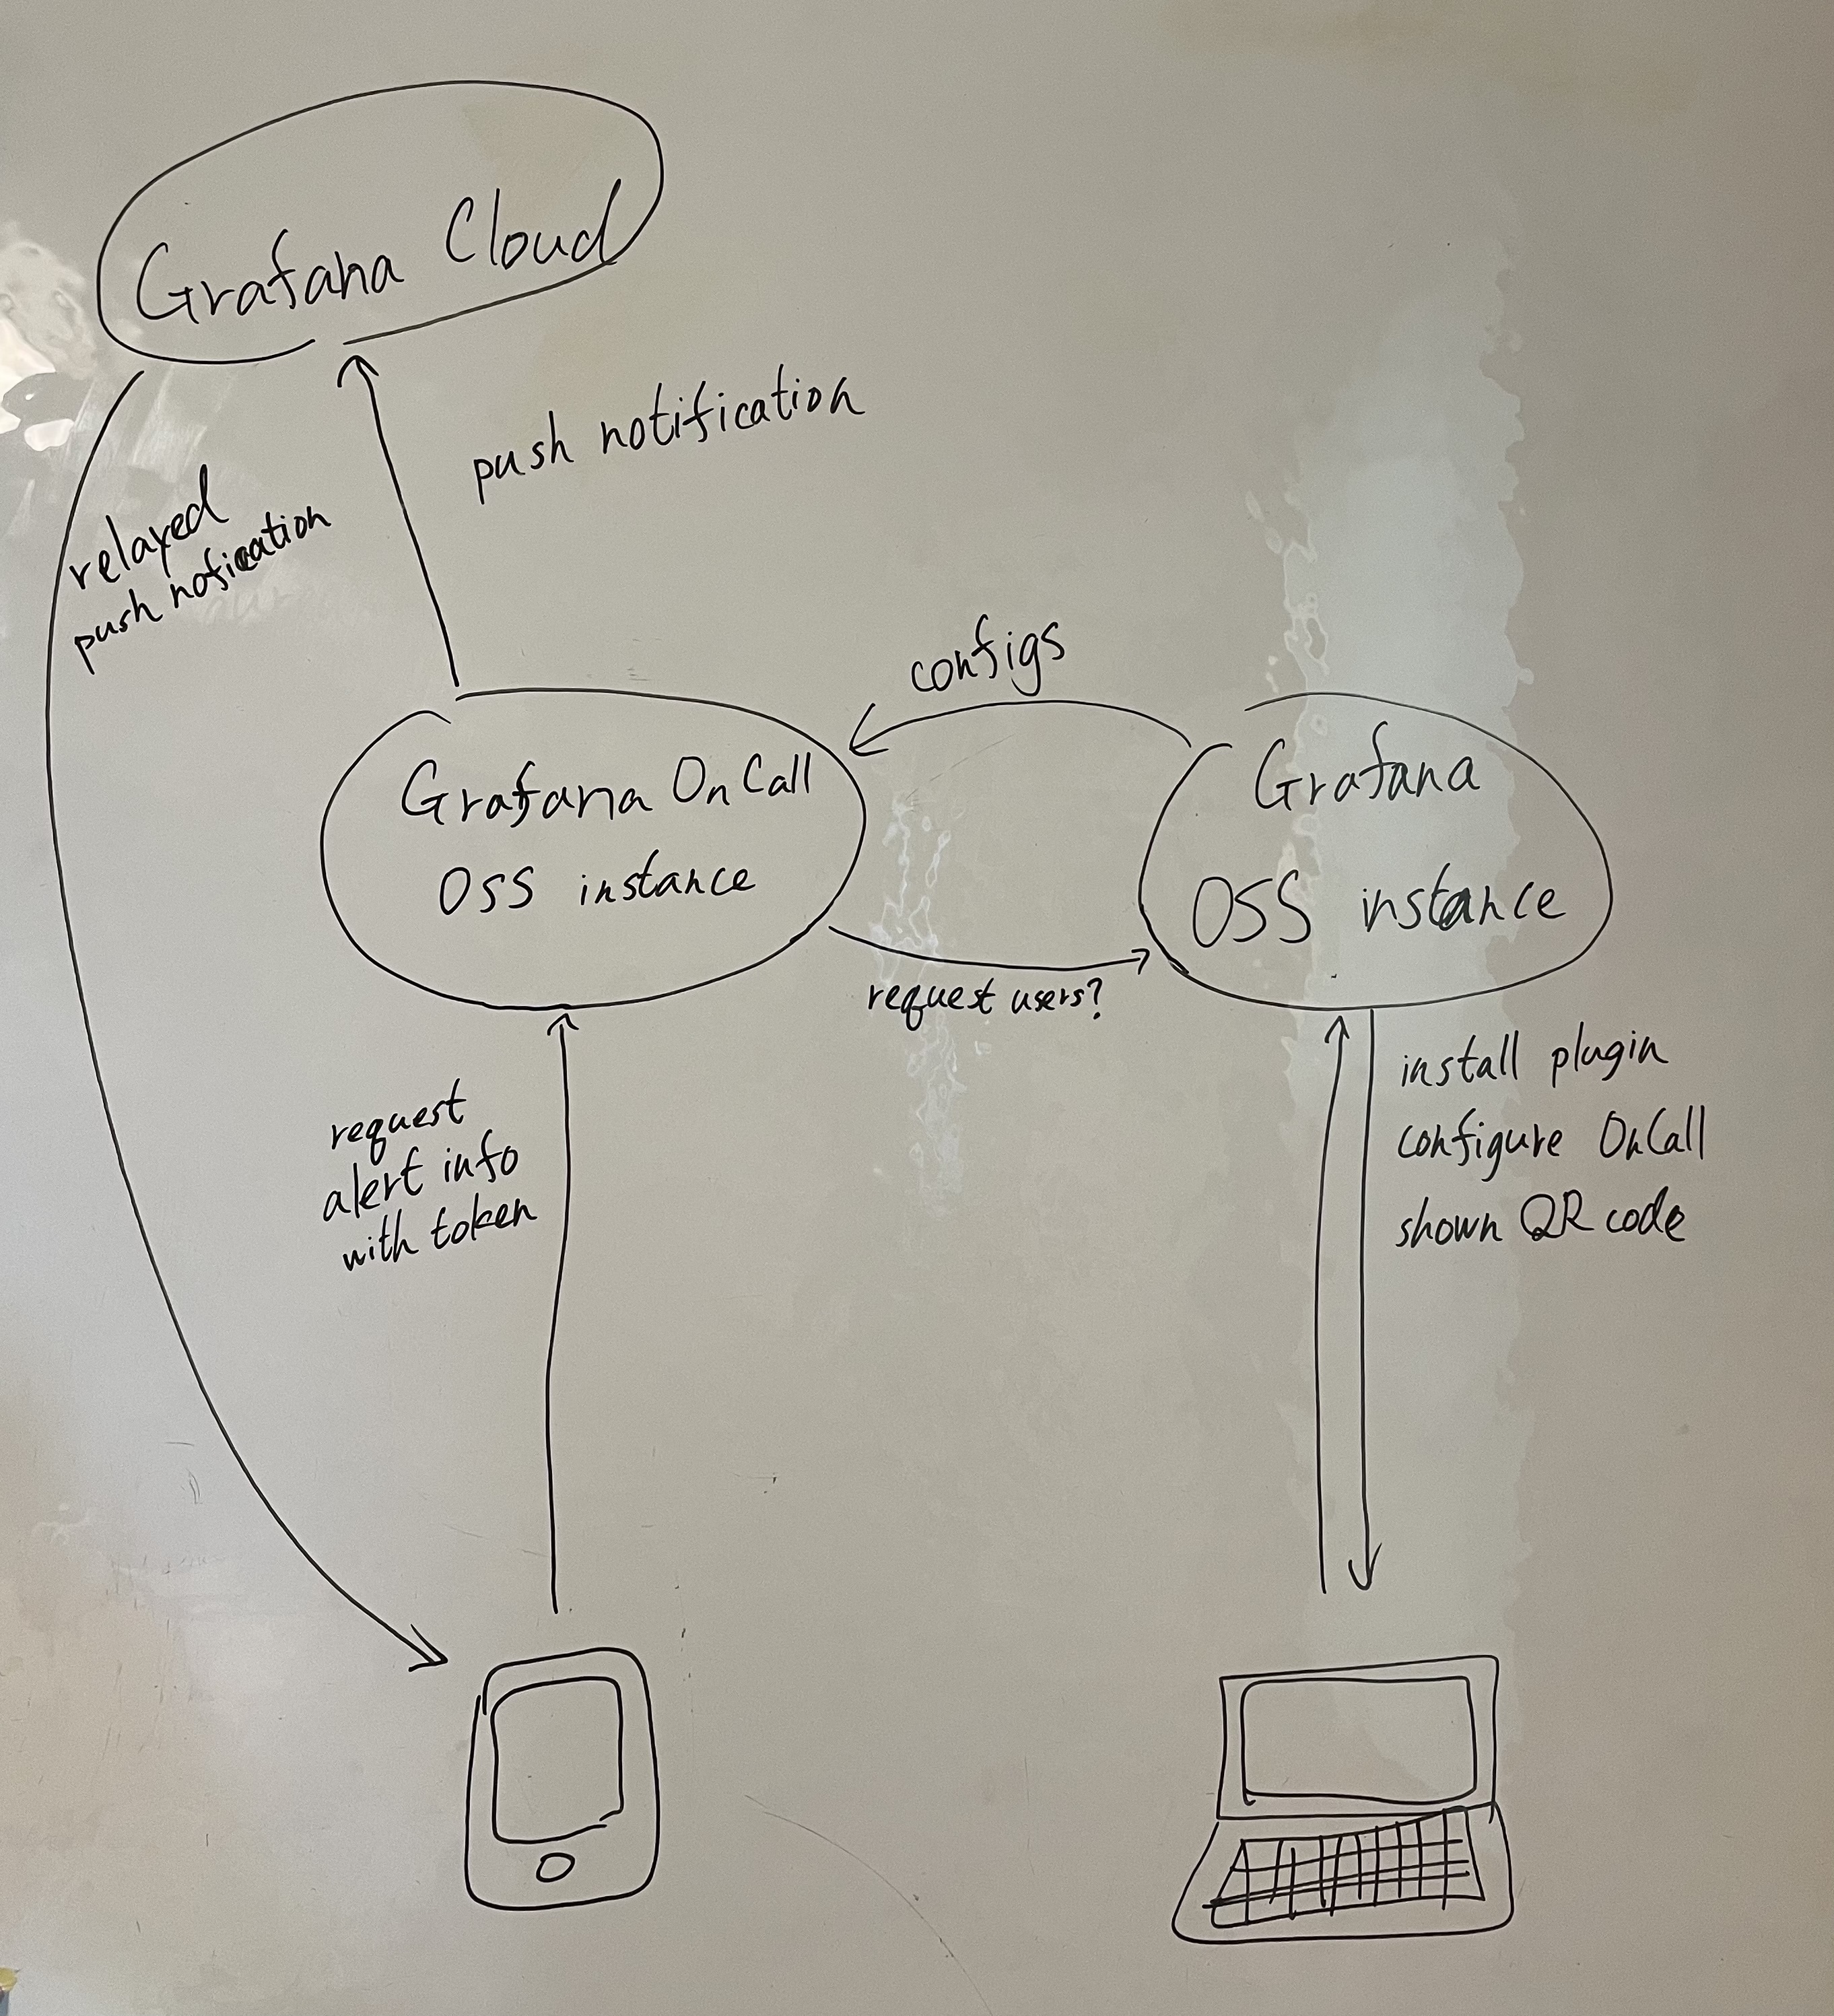 Grafana Cloud
push notification
relayed
push notification
configs
Grafana OnCall
OSS instance
Grafana
OSS instance
request users?
request
alert info
with token
install plugin
configure OnCall
shown QR code